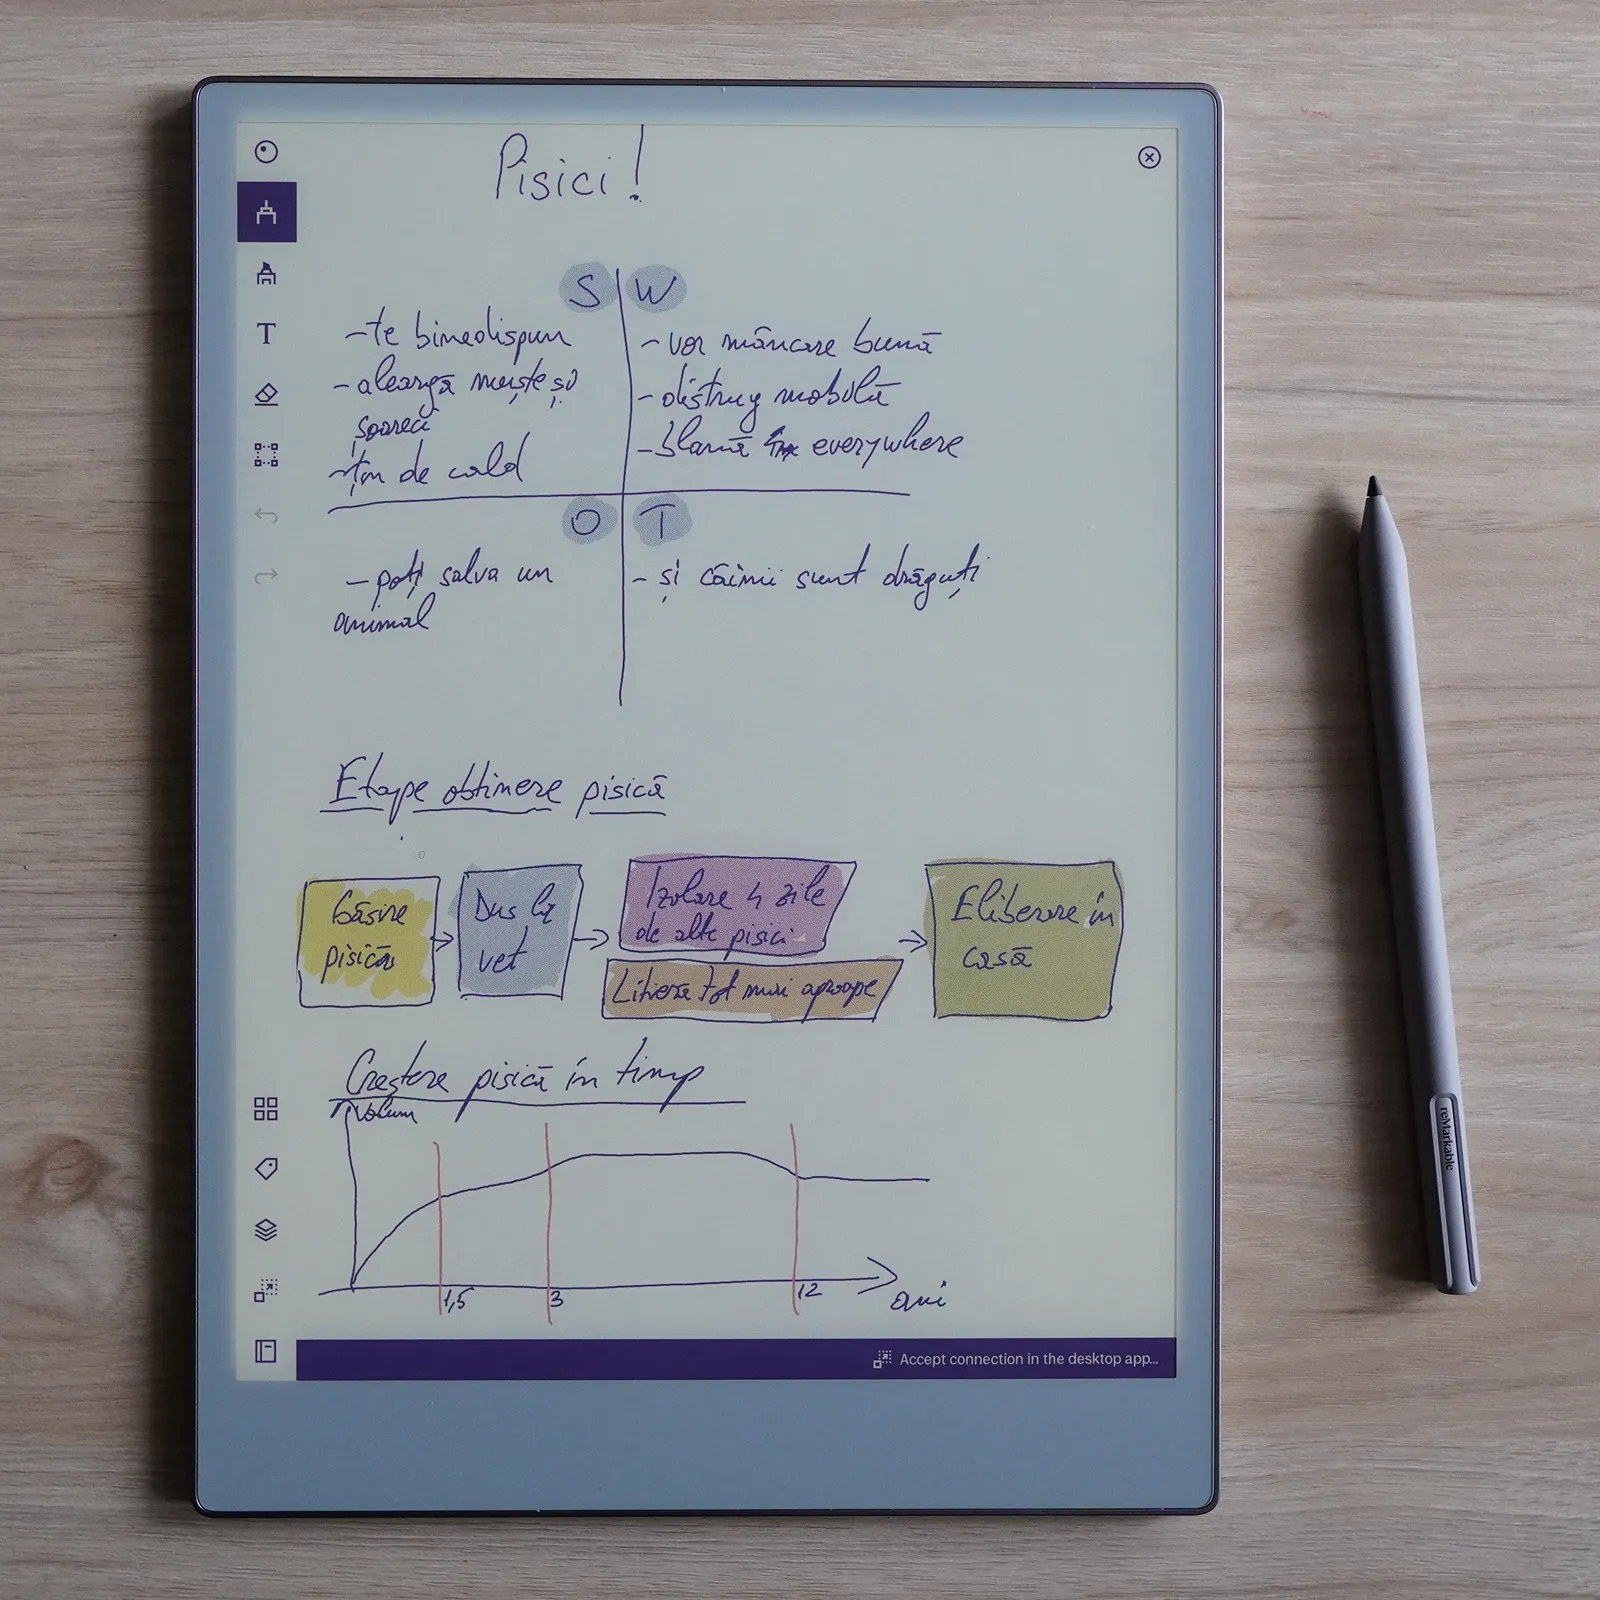 Pisici!
S
W
-te binedispun
-aleargă muște și
șoareci
-țin de cald
-vor mâncare bună
-distrug mobilă
-blană everywhere
O
T
-poți salva un
animal
- și câinii sunt drăguți
Etape obținere pisică
Găsire
pisică
Dus la
vet
Izolare 4 zile
de alte pisici
Litieră tot mai aproape
Eliberare în
casă
Creștere pisică în timp
Volum
1,5
3
12
ani
Accept connection in the desktop app...
T
reMarkable